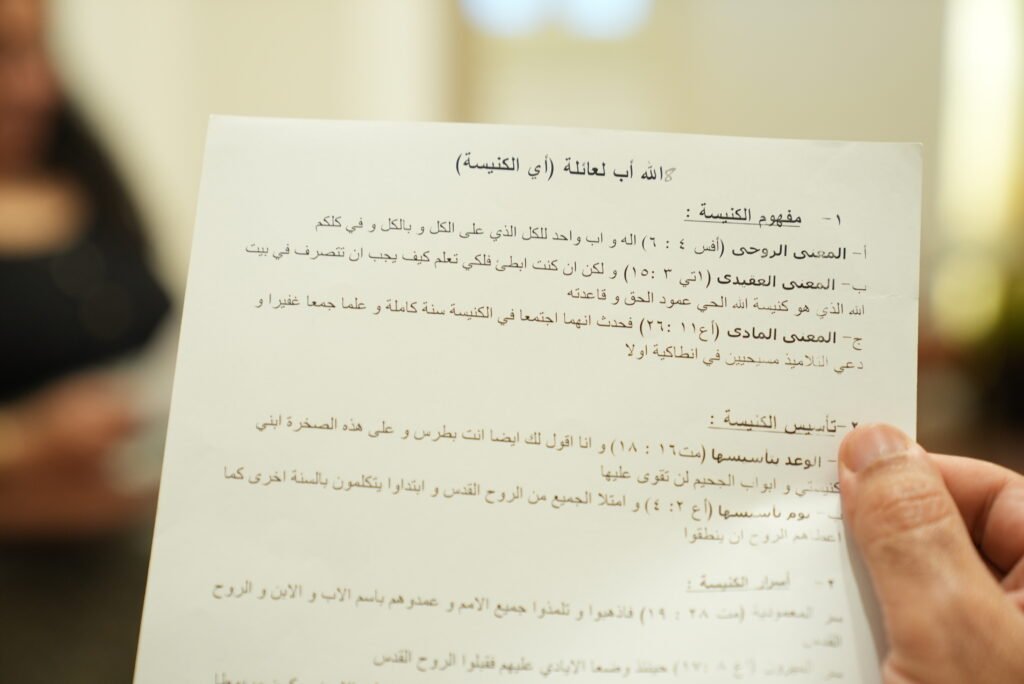 الله أب لعائلة (أي الكنيسة) 8
١- مفهوم الكنيسة :
أ- المعنى الروحى (أفس ٤ : ٦) اله و اب واحد للكل الذي على الكل و بالكل و في كلكم
ب- المعنى العقيدى (١تي ٣ :١٥) و لكن ان كنت ابطئ فلكي تعلم كيف يجب ان تتصرف في بيت
الله الذي هو كنيسة الله الحي عمود الحق و قاعدته
ج- المعنى المادى (أع١١ :٢٦) فحدث انهما اجتمعا في الكنيسة سنة كاملة و علما جمعا غفيرا و
دعي التلاميذ مسيحيين في انطاكية اولا
٢-تأسيس الكنيسة :
- الوعد بتأسيسها (مت١٦ : ١٨) و انا اقول لك ايضا انت بطرس و على هذه الصخرة ابني
كنيستي و ابواب الجحيم لن تقوى عليها
ب- يوم تأسيسها (أع ٢: ٤) و امتلا الجميع من الروح القدس و ابتداوا يتكلمون بالسنة اخرى كما
اعطاهم الروح ان ينطقوا
٣- أسرار الكنيسة :
سر المعمودية (مت ٢٨ : ١٩) فاذهبوا و تلمذوا جميع الامم و عمدوهم باسم الاب و الابن و الروح
القدس
سر الميرون (أع ٨ :١٧) حينئذ وضعا الايادي عليهم فقبلوا الروح القدس